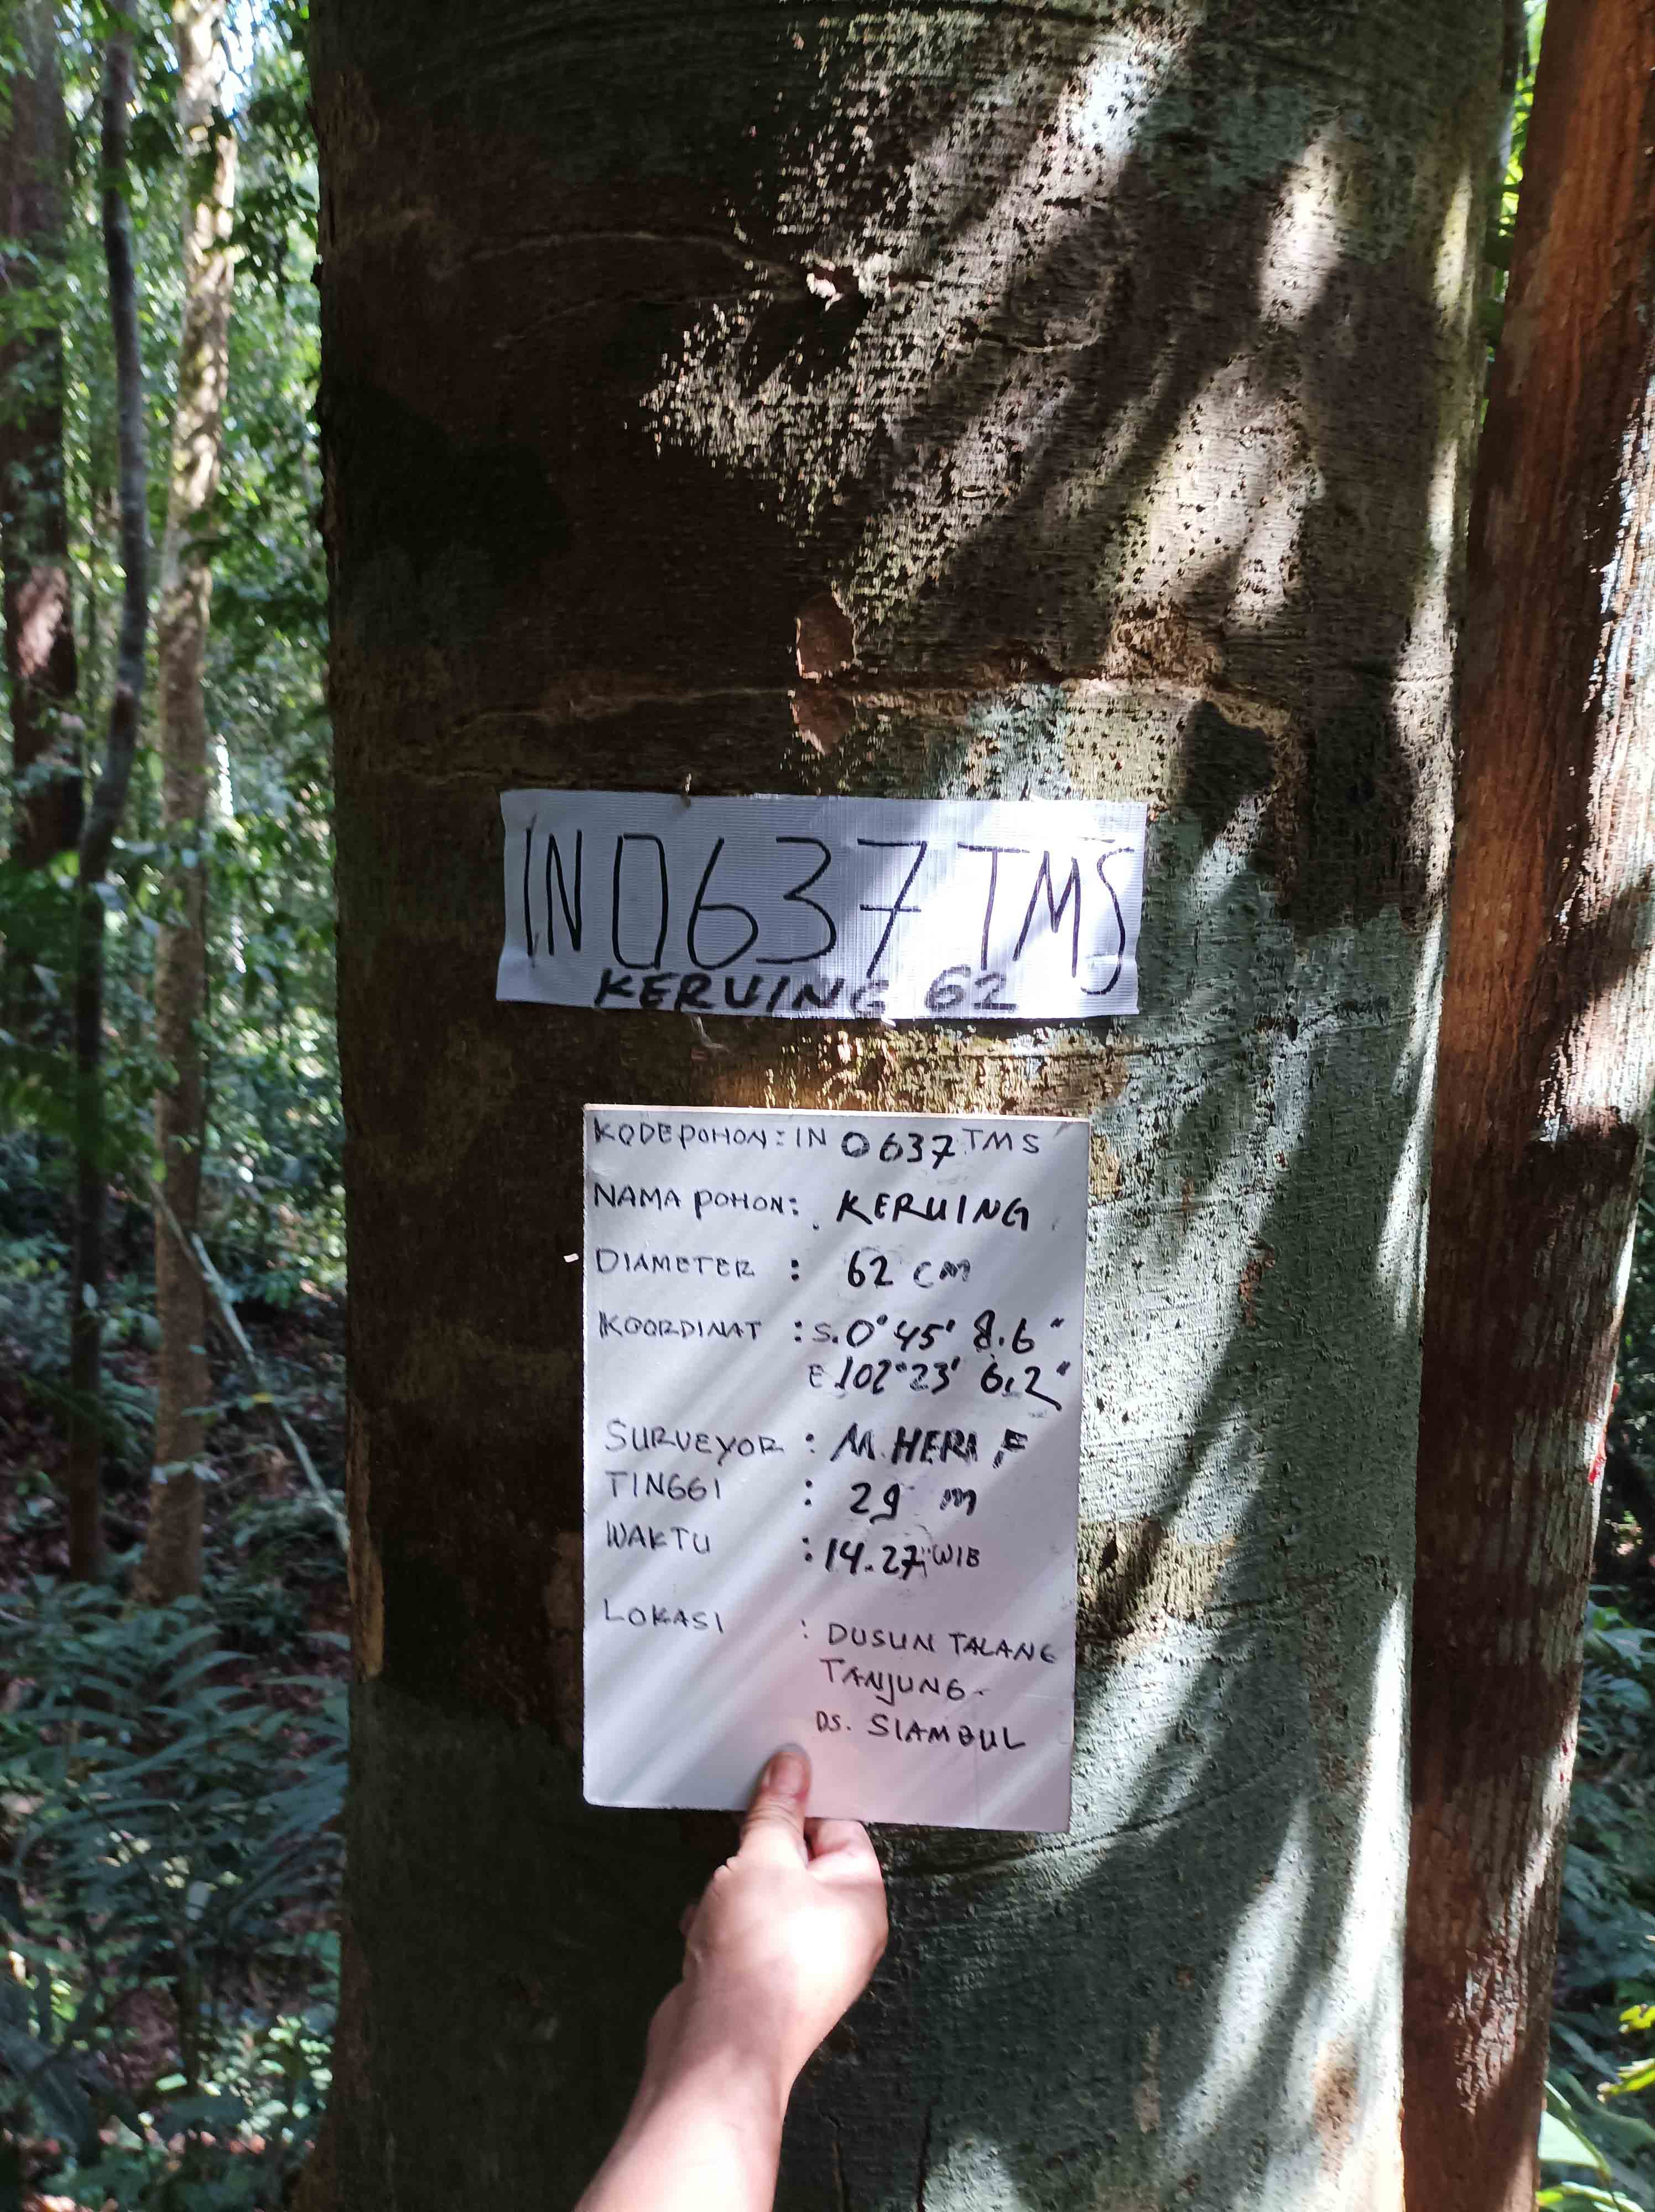 IN0637 TMS
KERUING 62
KODE POHON : IN 0637 TMS
NAMA POHON : KERUING
DIAMETER : 62 cm
KOORDINAT : S. 0° 45' 8.6"
E 102° 23' 6,2"
SURVEYOR : M. HERI F
TINGGI : 29 m
WAKTU : 14.27 WIB
LOKASI : DUSUN TALANG
TANJUNG -
DS. SIAMBUL